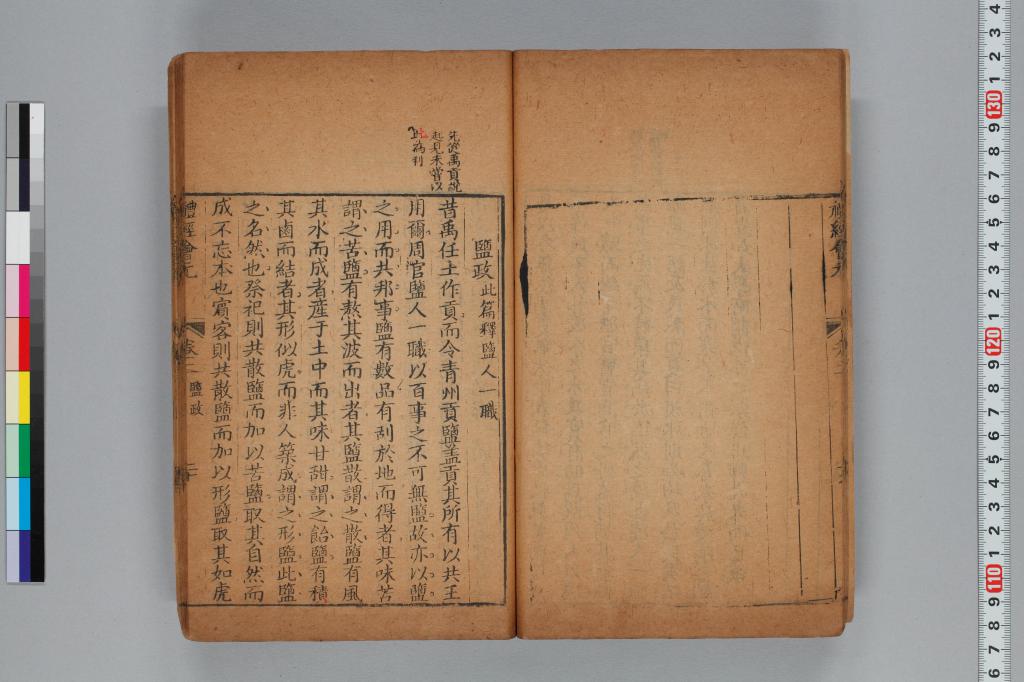 禮經會元
先從禹貢說
起見未嘗以
此為利
鹽政此篇釋鹽人一職
昔禹任土作貢而令青州貢鹽蓋貢其所有以共王
用爾周官鹽人一職以百事之不可無鹽故亦以鹽
之用而共邦事鹽有數品有刮於地而得者其味苦
謂之苦鹽有熬其波而出者其鹽散謂之散鹽有風
其水而成者產于土中而其味甘甜謂之飴鹽有積
其鹵而結者其形似虎而非人築成謂之形鹽此鹽
之名然也祭祀則共散鹽而加以苦鹽取其自然而
成不忘本也賓客則共散鹽而加以形鹽取其如虎
禮經會元
卷二
鹽政